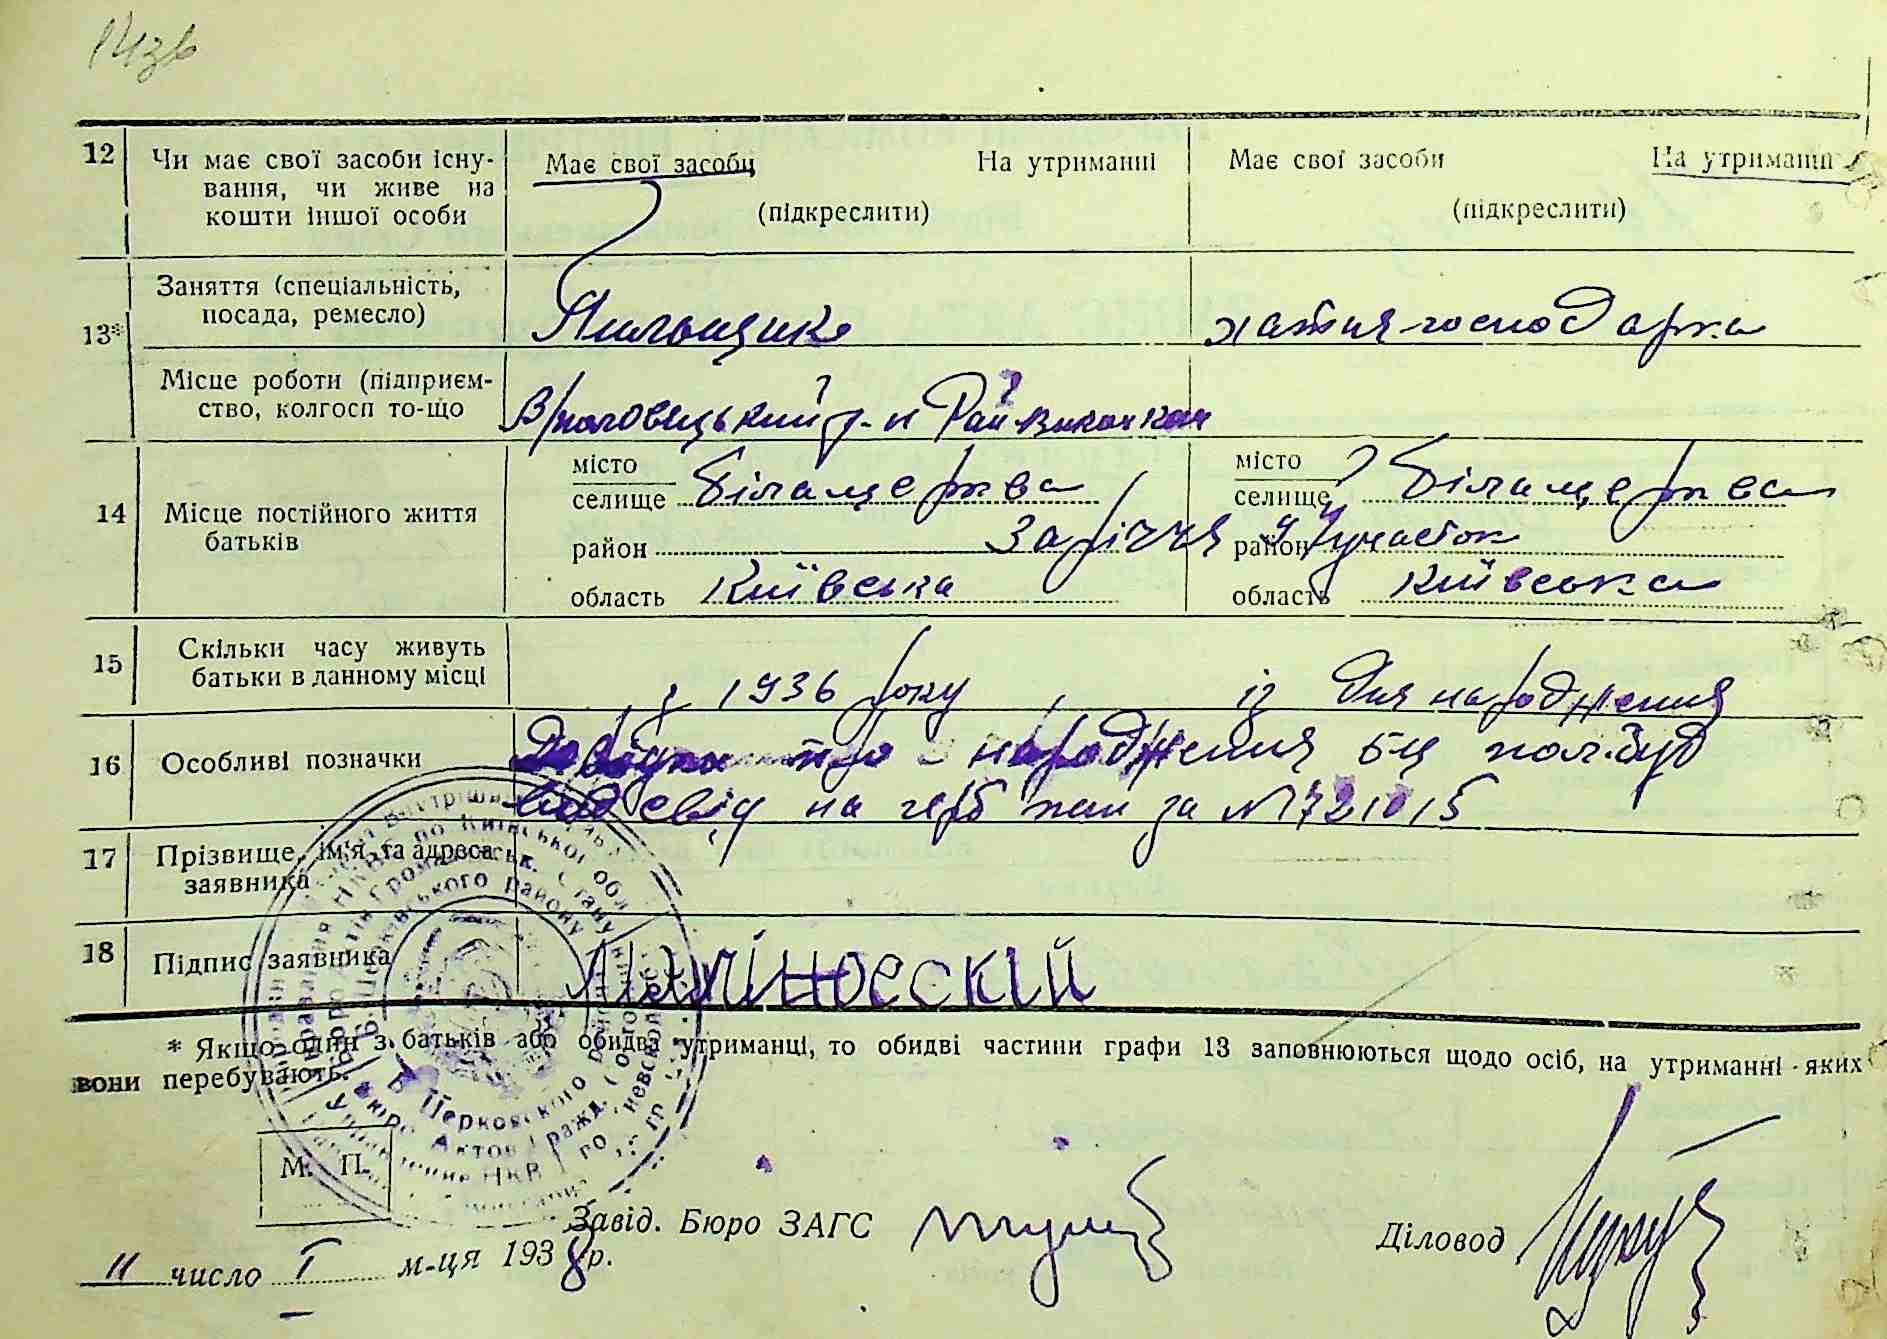 14зв
12 Чи має свої засоби існу-
вання, чи живе на
кошти іншої особи
Має свої засоби На утриманні
(підкреслити)
Має свої засоби На утриманні
(підкреслити)
13* Заняття (спеціальність,
посада, ремесло)
Пильщик
хатня господарка
Місце роботи (підприєм-
ство, колгосп то-що
В/половецький р-н Райвиконком
14 Місце постійного життя
батьків
місто
селище Біла церква
район Заріччя
область Київська
місто
селище Біла церква
район участок
область Київська
15 Скільки часу живуть
батьки в данному місці
з 1936 року
із дня народження
16 Особливі позначки
Довідка про народження БЦ пол.буд
свід на герб пап за № 721015
17 Прізвище, ім'я та адреса
заявника
18 Підпис заявника
* Якщо один з батьків або обидва утриманці, то обидві частини графи 13 заповнюються щодо осіб, на утриманні яких
вони перебувають.
М. П.
Завід. Бюро ЗАГС
Діловод
11 число I м-ця 1938 р.